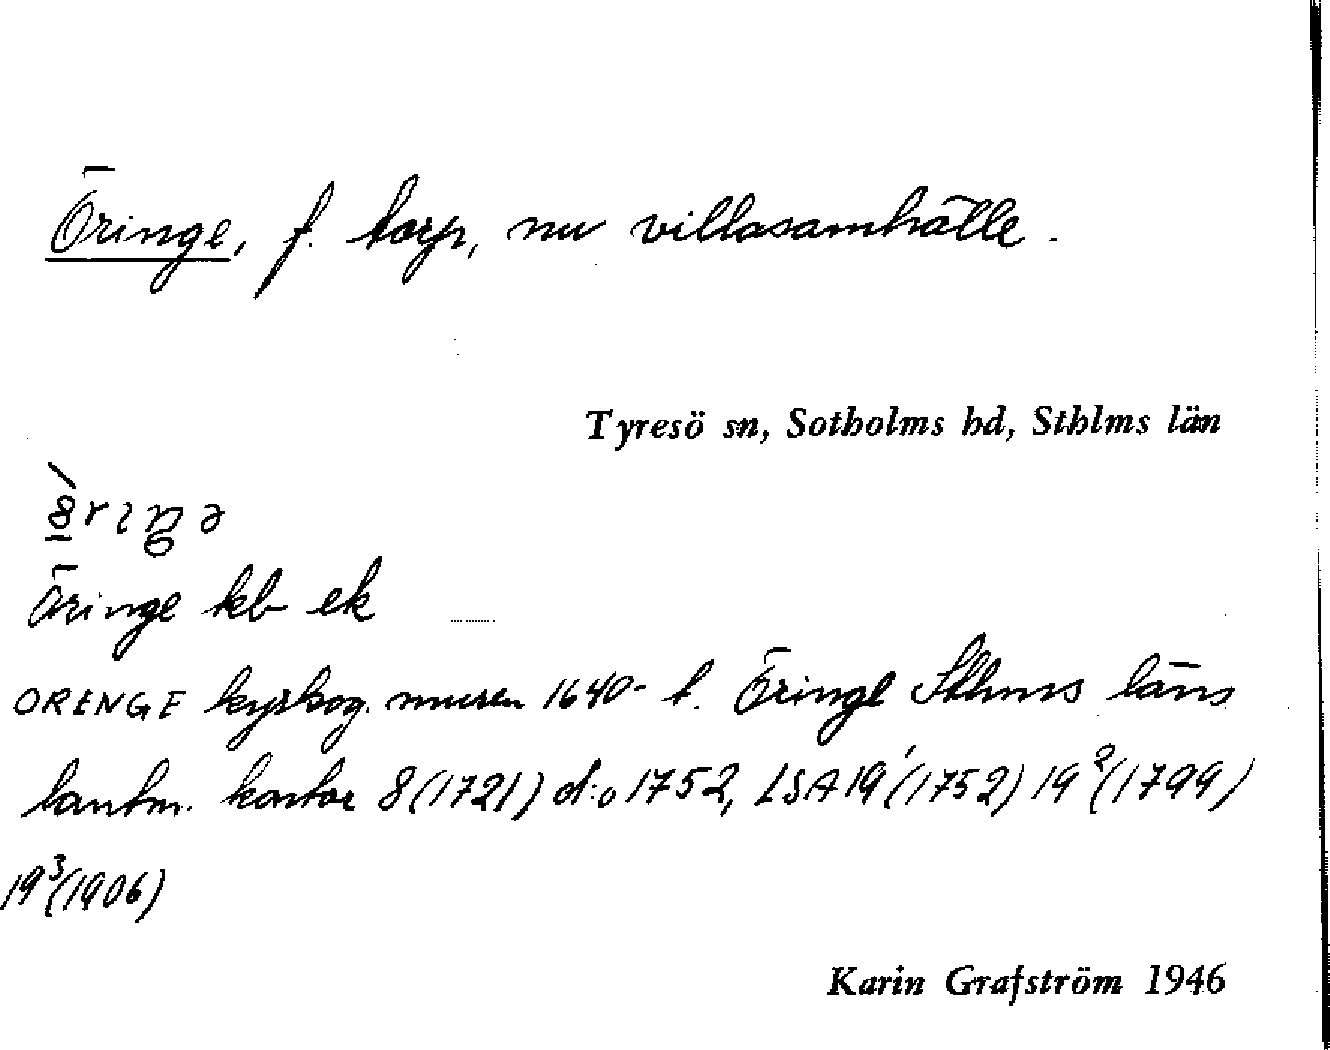 Öringe, f. torp, nu villasamhälle.
Tyresö sn, Sotholms hd, Sthlms län
Öringe kb ek
ORENGE kyrkog. muren 1640- t. Öringe Sthms läns
lantm. kontor 8 (1721) d:o 1752, LSA 19¹ (1752) 19² (1799)
19³ (1906)
Karin Grafström 1946